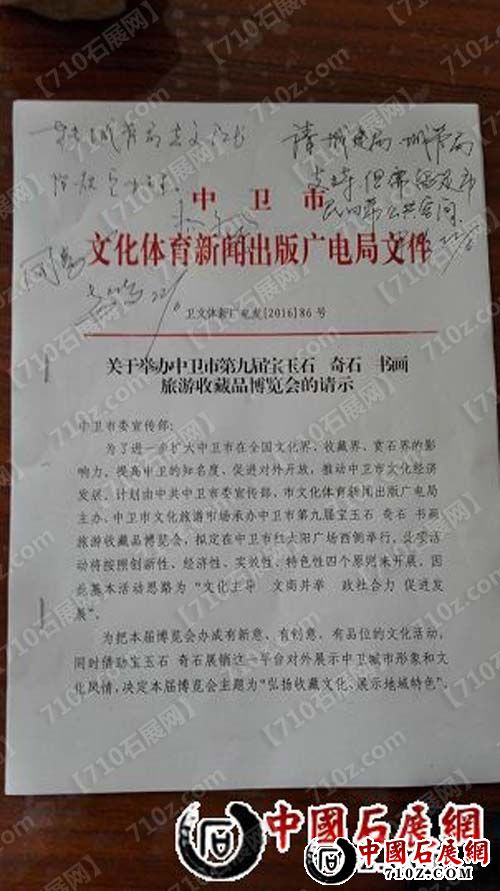 中卫市
文化体育新闻出版广电局文件
卫文体新广电发[2016]86号
关于举办中卫市第九届宝玉石 奇石 书画
旅游收藏品博览会的请示
中卫市委宣传部:
为了进一步扩大中卫市在全国文化界、收藏界、赏石界的影
响力、提高中卫的知名度、促进对外开放，推动中卫市文化经济
发展、计划由中共中卫市委宣传部、市文化体育新闻出版广电局
主办、中卫市文化旅游市场承办中卫市第九届宝玉石 奇石 书画
旅游收藏品博览会，拟定在中卫市红太阳广场西侧举行。此项活
动将按照创新性、经济性、实效性、特色性四个原则来开展。因
此基本活动思路为“文化主导 文商并举 政社合力 促进发
展”。
为把本届博览会办成有新意、有创意、有品位的文化活动，
同时借助宝玉石 奇石展销这一平台对外展示中卫城市形象和文
化风情，决定本届博览会主题为“弘扬收藏文化、展示地域特色”。
请城建局 城管局
支持
同意
【710石展网】
710z.com
中國石展網
710z.COM